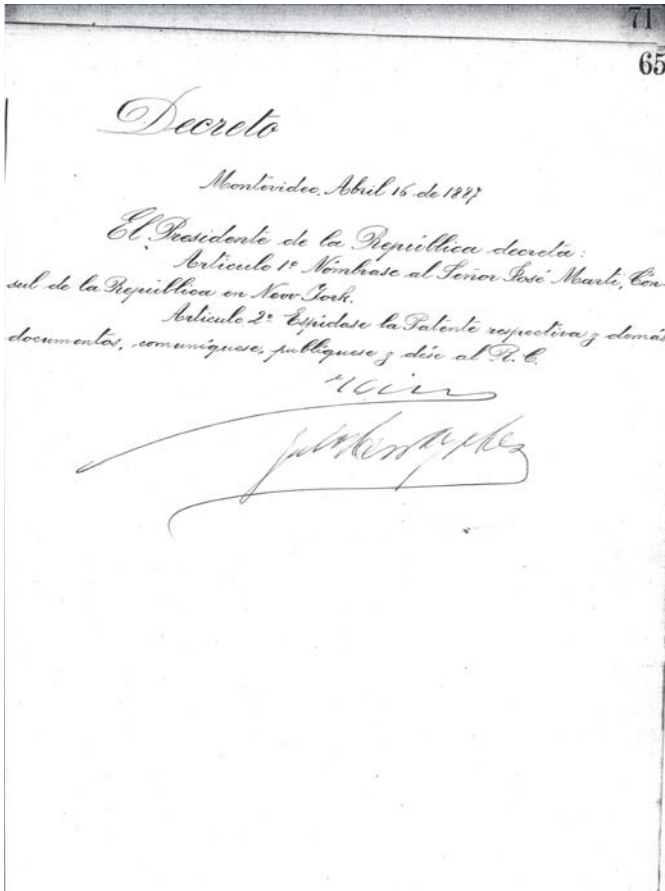 71
65
Decreto
Montevideo, Abril 16 de 1887
El Presidente de la República decreta:
Artículo 1º Nómbrase al Señor José Martí, Cón-
sul de la República en New York.
Artículo 2º Espídase la Patente respectiva y demás
documentos, comuníquese, publíquese y dése al R. C.